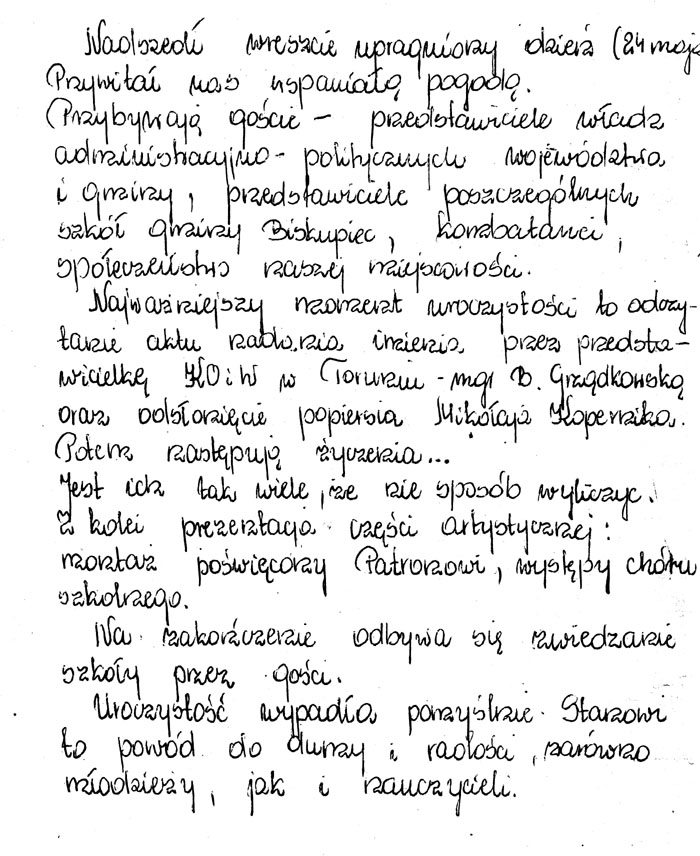 Nadszedł wreszcie upragniony dzień (24 maja
Przywitał nas wspaniałą pogodą.
Przybywają goście – przedstawiciele władz
administracyjno - politycznych województwa
i gminy, przedstawiciele poszczególnych
szkół gminy Biskupiec, kombatanci,
społeczeństwo naszej miejscowości.
Najważniejszy moment uroczystości to odczy-
tanie aktu nadania imienia przez przedsta-
wicielkę KOiW w Toruniu - mgr B. Grządkowską
oraz odsłonięcie popiersia Mikołaja Kopernika.
Potem następują życzenia...
Jest ich tak wiele, że nie sposób wyliczyć.
Z kolei prezentacja części artystycznej:
montaż poświęcony Patronowi, występy chóru
szkolnego.
Na zakończenie odbywa się zwiedzanie
szkoły przez gości.
Uroczystość wypadła pomyślnie. Stanowi
to powód do dumy i radości, zarówno
młodzieży, jak i nauczycieli.